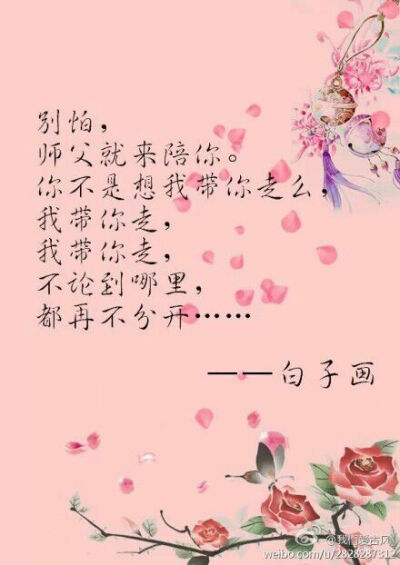 别怕，
师父就来陪你。
你不是想我带你走么，
我带你走，
我带你走，
不论到哪里，
都再不分开……
——白子画
@我们爱古风
weibo.com/u/2828287312